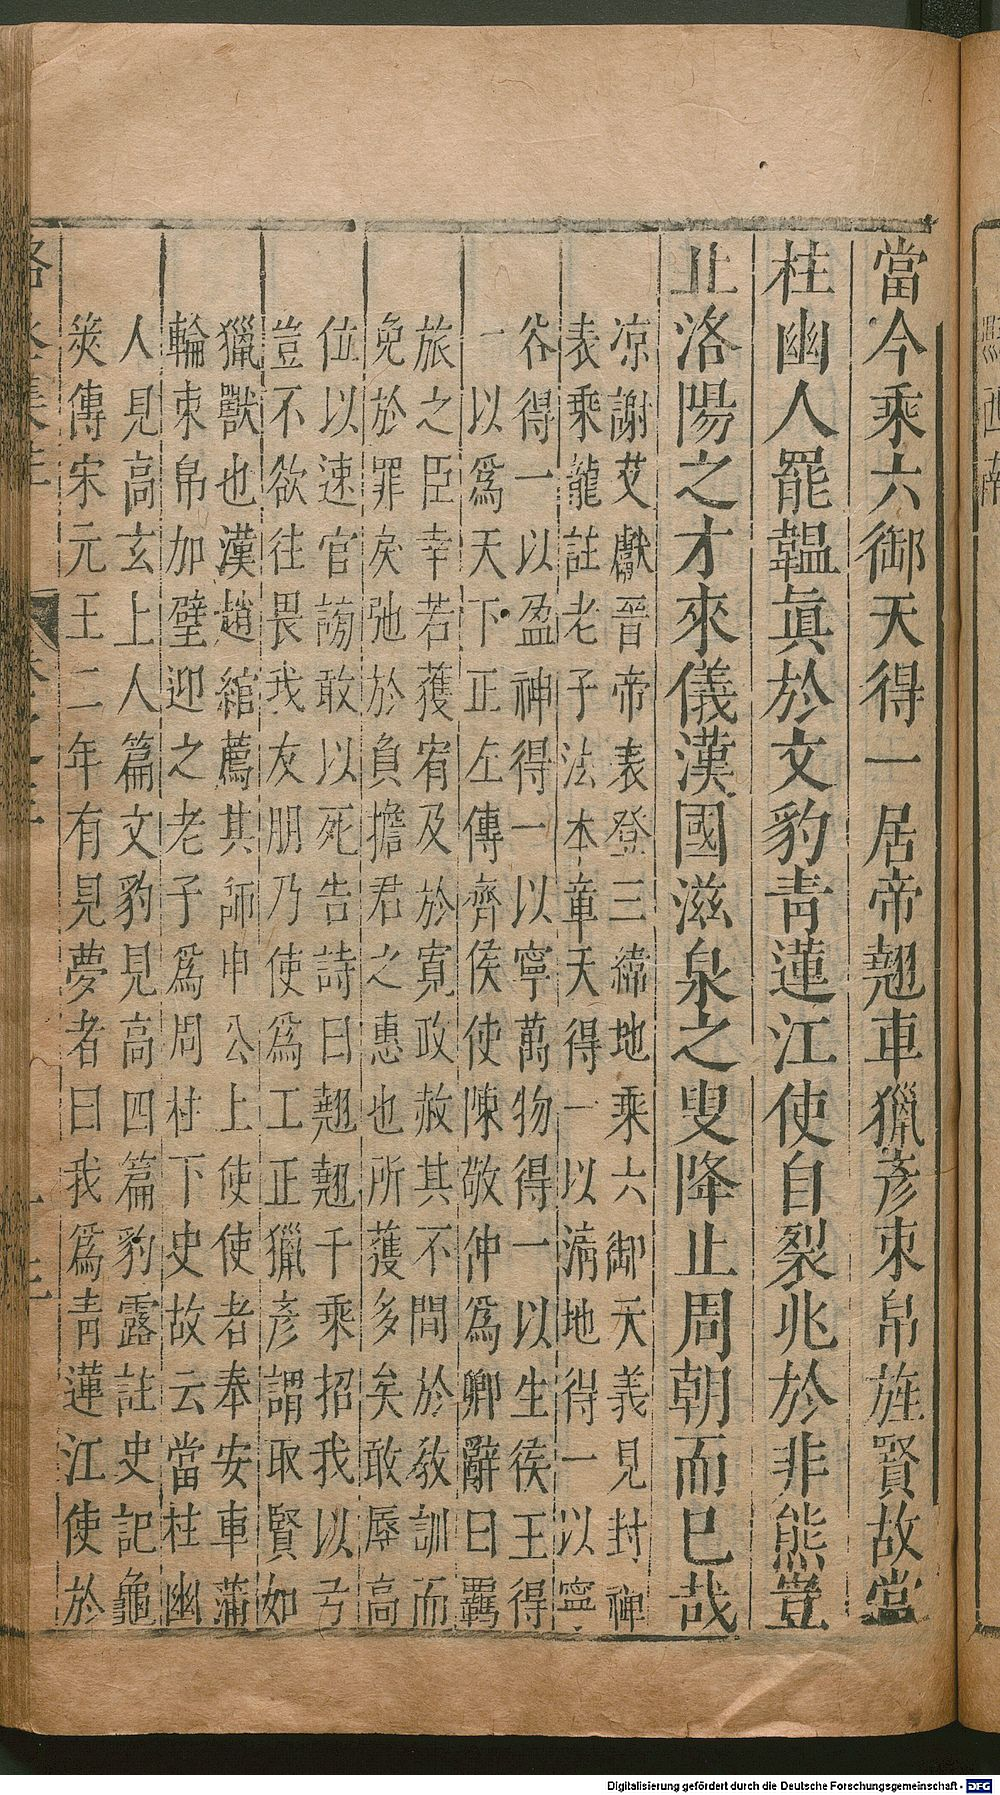 當今乘六御天得一居帝翹車獵彥束帛旌賢故當
柱幽人罷韞眞於文豹靑蓮江使自裂兆於非熊豈
止洛陽之才來儀漢國滋泉之叟降止周朝而已哉
凉謝艾獻晉帝表登三緯地乘六御天義見封禪
表乘龍註老子法本章天得一以淸地得一以寧
谷得一以盈神得一以寧萬物得一以生侯王得
一以爲天下正左傳齊侯使陳敬仲爲卿辭曰羈
旅之臣幸若獲宥及於寬政赦其不閒於敎訓而
免於罪戾弛於負擔君之惠也所獲多矣敢辱高
位以速官謗敢以死告詩曰翹翹千乘招我以弓
豈不欲往畏我友朋乃使爲工正獵彥謂取賢如
獵獸也漢趙綰薦其師申公上使使者奉安車蒲
輪束帛加璧迎之老子爲周柱下史故云當柱幽
人見高玄上人篇文豹見高四篇豹露註史記龜
筴傳宋元王二年有見夢者曰我爲靑蓮江使於
Digitalisierung gefördert durch die Deutsche Forschungsgemeinschaft - DFG